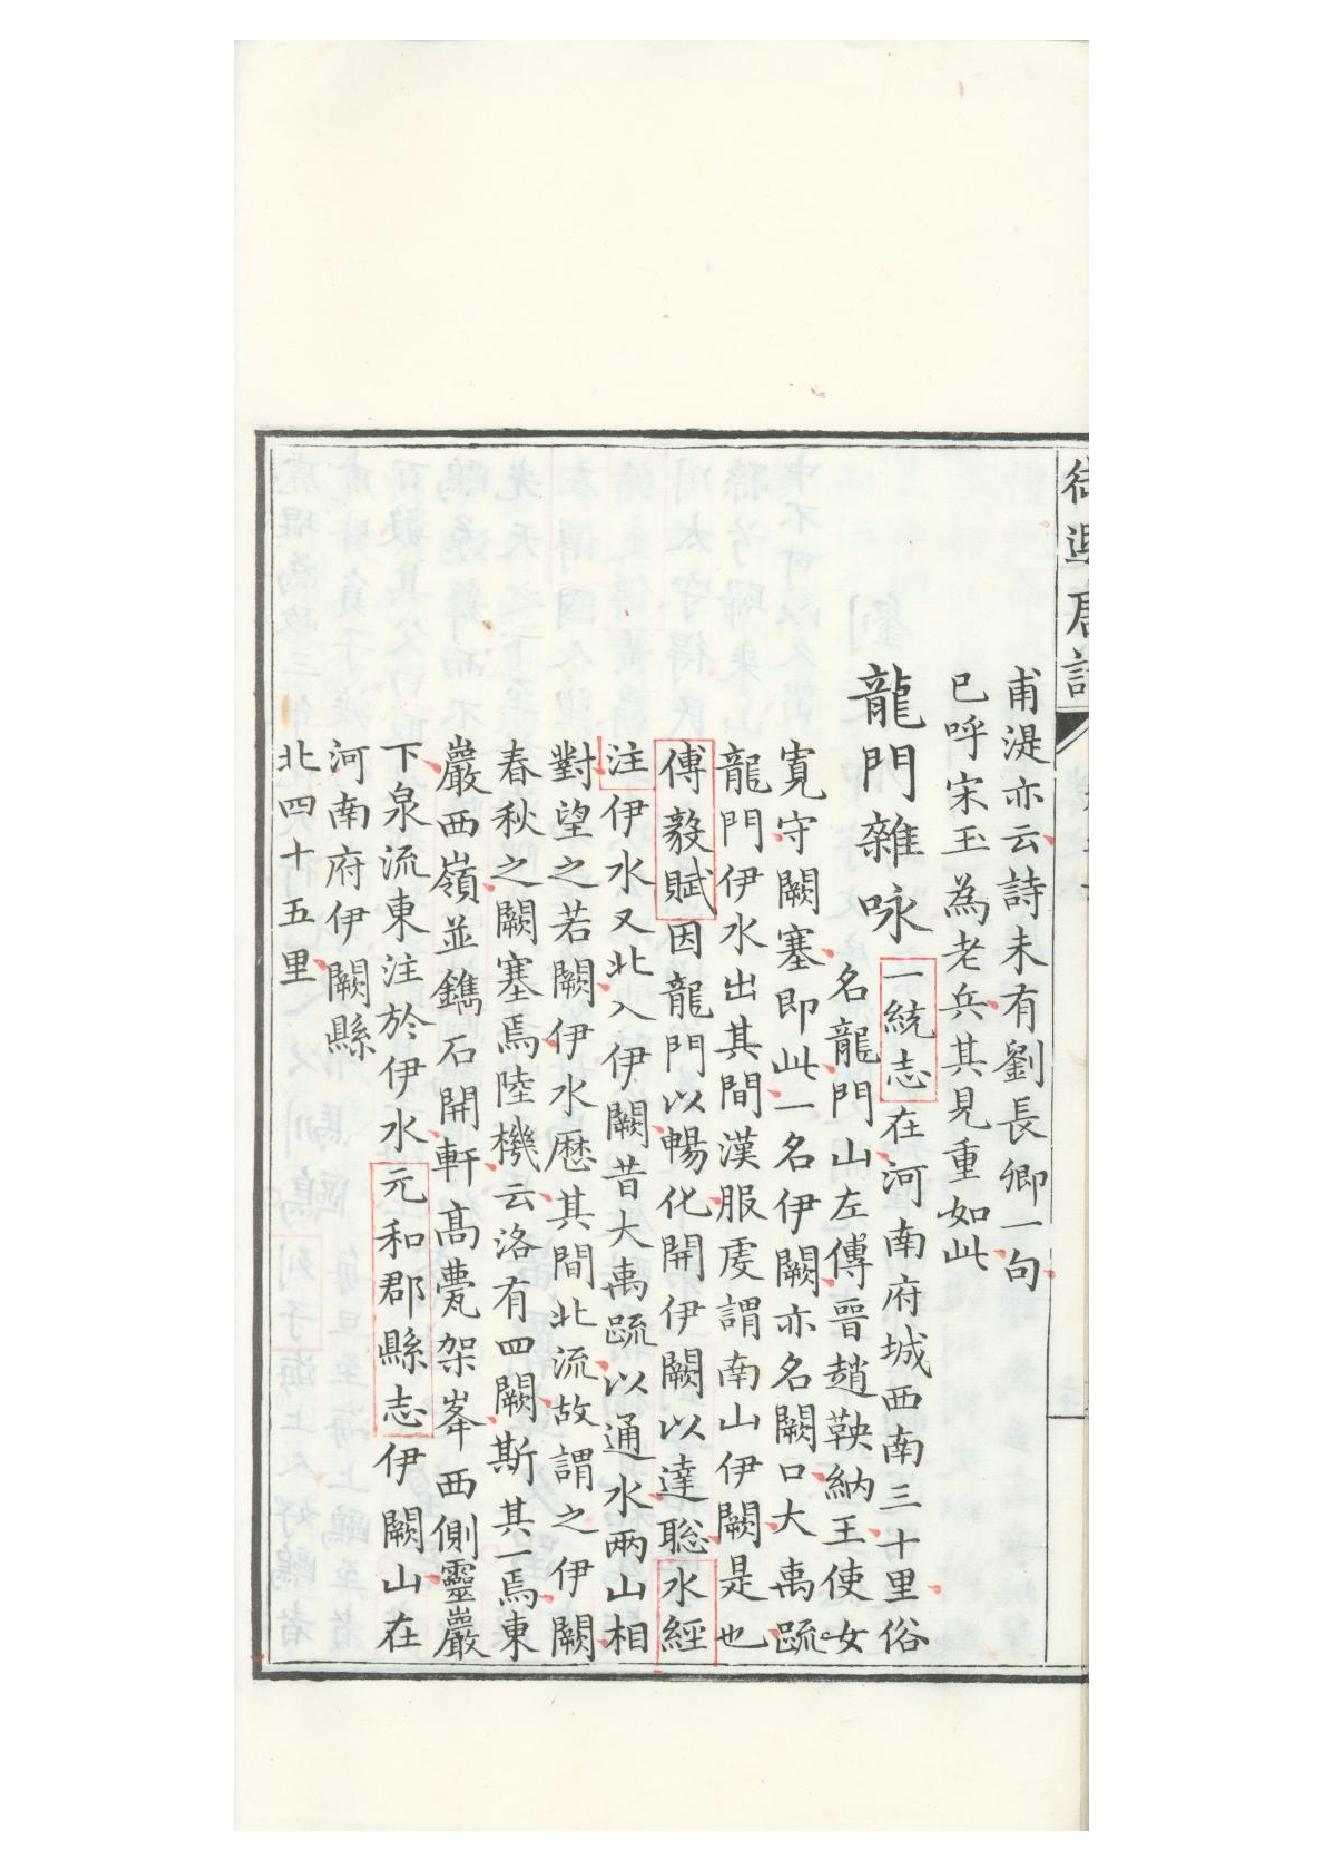 甫湜亦云詩未有劉長卿一句
已呼宋玉為老兵其見重如此
龍門雜咏一統志在河南府城西南三十里俗
名龍門山左傳晉趙鞅納王使女
寛守闕塞即此一名伊闕亦名闕口大禹䟽
龍門伊水出其間漢服虔謂南山伊闕是也
傅毅賦因龍門以暢化開伊闕以達聡水經
注伊水又北入伊闕昔大禹䟽以通水兩山相
對望之若闕伊水歴其間北流故謂之伊闕
春秋之闕塞焉陸機云洛有四闕斯其一焉東
巖西嶺並鐫石開軒高甍架峯西側靈巖
下泉流東注於伊水元和郡縣志伊闕山在
河南府伊闕縣
北四十五里